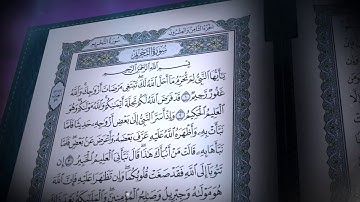 الجزء الثامن والعشرون سورة التحريم
سُورَةُ التَّحْرِيمِ
بِسْمِ ٱللَّهِ ٱلرَّحْمَٰنِ ٱلرَّحِيمِ
يَٰٓأَيُّهَا ٱلنَّبِيُّ لِمَ تُحَرِّمُ مَآ أَحَلَّ ٱللَّهُ لَكَۖ تَبْتَغِي مَرْضَاتَ أَزْوَٰجِكَۚ وَٱللَّهُ
غَفُورٌ رَّحِيمٌ ١ قَدْ فَرَضَ ٱللَّهُ لَكُمْ تَحِلَّةَ أَيْمَٰنِكُمْۚ وَٱللَّهُ مَوْلَىٰكُمْۖ وَهُوَ
ٱلْعَلِيمُ ٱلْحَكِيمُ ٢ وَإِذْ أَسَرَّ ٱلنَّبِيُّ إِلَىٰ بَعْضِ أَزْوَٰجِهِۦ حَدِيثًا فَلَمَّا
نَبَّأَتْ بِهِۦ وَأَظْهَرَهُ ٱللَّهُ عَلَيْهِ عَرَّفَ بَعْضَهُۥ وَأَعْرَضَ عَنۢ بَعْضٍۖ فَلَمَّا
نَبَّأَهَا بِهِۦ قَالَتْ مَنْ أَنۢبَأَكَ هَٰذَاۖ قَالَ نَبَّأَنِيَ ٱلْعَلِيمُ ٱلْخَبِيرُ ٣ إِن
تَتُوبَآ إِلَى ٱللَّهِ فَقَدْ صَغَتْ قُلُوبُكُمَاۖ وَإِن تَظَٰهَرَا عَلَيْهِ فَإِنَّ ٱللَّهَ
هُوَ مَوْلَىٰهُ وَجِبْرِيلُ وَصَٰلِحُ ٱلْمُؤْمِنِينَۖ